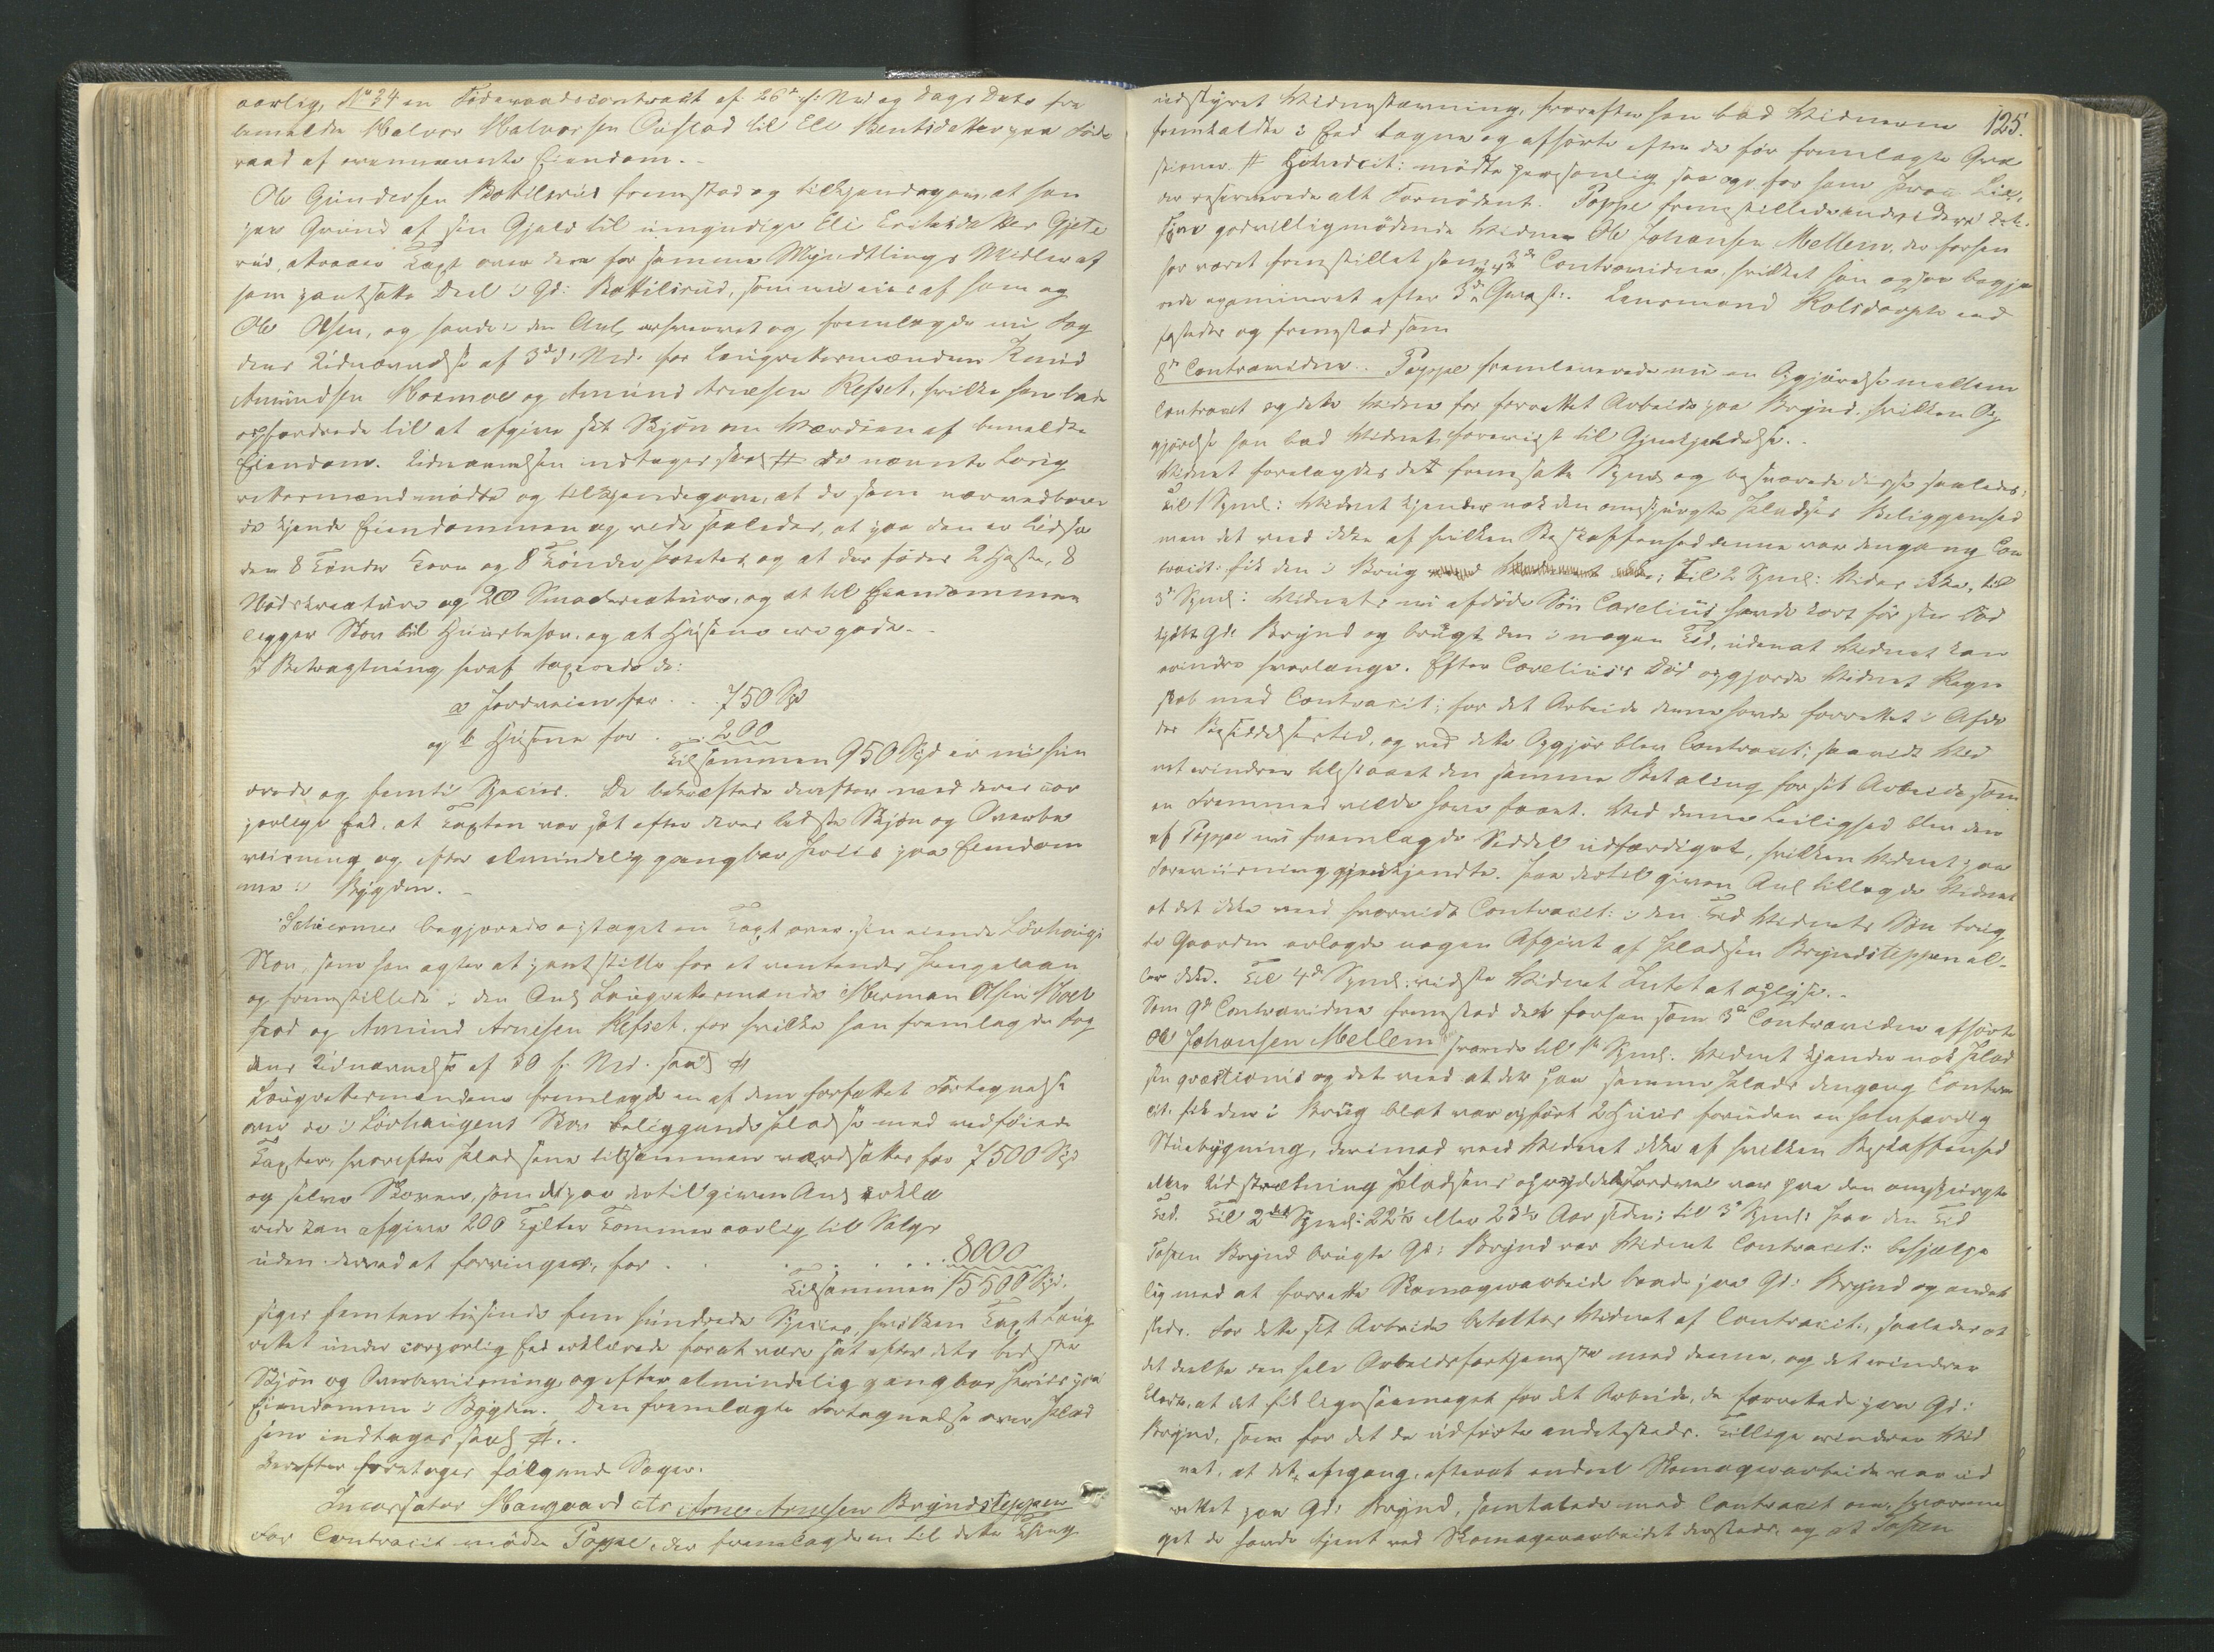 aarlig, No 34 en Föderaadscontract af 26de f: Md og Dags Dato fra
bemeldte Halvor Halvorsen Öiestad til Eli Bentsdatter paa Föde
raad af ovennævnte Eiendom. -
Ole Gundersen Bottilsrud fremstod og tilkjendegav, at han
paa Grund af sin Gjæld til umyndige Eli Eriksdatter Gjete
rud, attraaer Taxt over den for samme Myndtlings Midler af
ham pantsatte Deel i Gd: Bottilsrud, som nu eies af ham og
Ole Olsen, og havde i den Anl. og fremlagde nu Fog
dens Udnævnelse af 3de d: Md. for Laugrettesmændene Knud
Amundsen Moemoe og Amund Arnesen Refset, hvilke han bad
opfordrede til at afgive sit Skjön om Værdien af bemeldte
Eiendom. Udnævnelsen indtages saal. # De nævnte Laug
rettesmænd mödte og tilkjendegave, at de som
de kjende Eiendommen og vide saaledes, at paa den er Udsæd
den 8 Tönder Korn og 8 Tönder Poteter, og at der födes 2 Heste, 8
Nödskreature og 20 Smaakreature, og at til Eiendommen
ligger Skov til Huusbehov, og at Husene ere gode. -
I Betragtning heraf taxerede de:
a Jordveien for . . 750 Spd
og b Husene for . . 200
Tilsammen 950 Spd er ni hun
drede og femti Species. De bekræftede derefter med deres cor
porlige Eed, at Taxten var sat efter deres bedste Skjön og Overbe
viisning og efter almindelig gangbar Priis paa Eiendom
me i Bygden. -
Schiermer begjærede optaget en Taxt over sin eiende Lövhougs
Skov, som han agter at pantstille for et ventendes Pengelaan
og fremstillede i den Anl. Laugrettesmændene Herman Olsen
stad og Amund Arnesen Refset, for hvilke han fremlagde Fog
dens Udnævnelse af 30 f. Md. saal. #
Laugrettesmændene fremlagde en af dem forfattet Fortegnelse
over de i Lövhaugens Skov beliggende Pladse med vedföiede
Taxter, hvorefter Pladsene tilsammen værdsættes for 7500 Spd
og selve Skoven, som de paa dertil given Anl. erklæ
rede kan afgive 200 Tylter Tömmer aarlig til Salgs
uden derved at forringes, for . . . . . . 8000
Tilsammen 15500 Spd.
siger femten tusinde fem hundrede Species, hvilken Taxt Laug
rettet under corporlig Eed erklærede forat være sat efter dets bedste
Skjön og Overbeviisning og efter almindelig gangbar Priis paa
Eiendomme i Bygden. Den fremlagte Fortegnelse over Plad
sene indtages saal. #. .
Derefter foretoges fölgende Sager.
Incassator Haugaard ctr Arne Arnesen Bryndsteppen
For Contracit: mödte Poppe, der fremlagde en til dette Thing
125.
udstyret Vidnestævning, hvorefter han bad Vidnerne
fremkaldte i Eed tagne og afhörte efter de för fremlagte Qvæ
stioner. # Hovedcit: mödte personlig saa ogs. for ham
der reserverede alt Fornödent. Poppe fremstillede endvidere det
her godvilligmödende Vidne Ole Johansen Mellem, der forhen
har været fremstillet som 3de Contravidne, hvilket han ogsaa begjæ
rede examineret efter 3de Qvæst:. Lensmand Kolsdorph end
stedes og fremstod som
8de Contravidne. Poppe fremleverede nu en Opgjörelse mellem
Contracit: og dette Vidne for forrettet Arbeide paa Brynd, hvilken Op
gjörelse han bad Vidnet foreviist til Gjenkjendelse. .
Vidnet forelagdes det fremsatte Spml. og besvarede disse saaledes:
Til 1 Spml: Vidnet kjender nok den omspurgte Pladses Beliggenhed
men det veed ikke af hvilken Beskaffenhed denne var dengang Con
tracit: fik den i Brug; Til 2 Spml: Vides ikke, til
3de Spml: Vidnets nu afdöde Sön Carelius havde kort för sin Död
kjöbt Gd: Brynd og brugt den i nogen Tid, uden at Vidnet kan
erindre hvorlænge. Efter Carelius's Död opgjorde Vidnet Regn
skab med Contracit: for det Arbeide denne havde forrettet i Afdö
des Besiddelsestid, og ved dette Opgjör blev Contracit: saavidt Vid
net erindrer tilstaaet den samme Betaling for sit Arbeide som
en Fremmed vilde have faaet. Ved denne Leilighed blev den
af Poppe nu fremlagde Seddel udfærdiget, hvilken Vidnet paa
Foreviisning gjenkjendte. Paa dertil given Anl. tillagde Vidnet
at det ikke veed hvorvidt Contracit: i den Tid Vidnets Sön brug
te Gaarden erlagde nogen Afgivt af Pladsen Bryndsteppen el-
ler ikke. Til 4de Spml: vidste Vidnet Intet at oplyse. -
Som 9de Contravidne fremstod det forhen som 3de Contravidne afhörte
Ole Johansen Mellem svarede til 1ste Spml. Vidnet kjender nok Plad
sen qvæstionis og det veed at der paa samme Plads dengang Contra
cit: fik den i Brug blot var opfört 2 Huus foruden en halvfærdig
Stuebygning, derimod veed Vidnet ikke af hvilken Beskaffenhed
eller Udstrækning Pladsens opryddede Jordvei var paa den omspurgte
Tid. Til 2det Spml: 22½ eller 23½ Aar siden; til 3de Spml: Paa den Tid
Tosten Brynd brugte Gd: Brynd var Vidnet Contracit: behjælpe
lig med at forrette Skomagerarbeide baade paa Gd: Brynd og andet
steds. For dette sit Arbeide betaltes Vidnet af Contracit:, saaledes at
det deelte den hele Arbeidsfortjeneste med denne, og det erindrer
klart, at det fik ligesaameget for det Arbeide, de forrettede paa Gd:
Brynd, som for det de udförte andetsteds. Tillige erindrer Vid
net, at det engang, efterat endeel Skomagerarbeide var ud
rettet paa Gd: Brynd, samtalede med Contracit: om, hvorme
get de havde tjent ved Skomagerarbeidet dersteds, og at Tosten